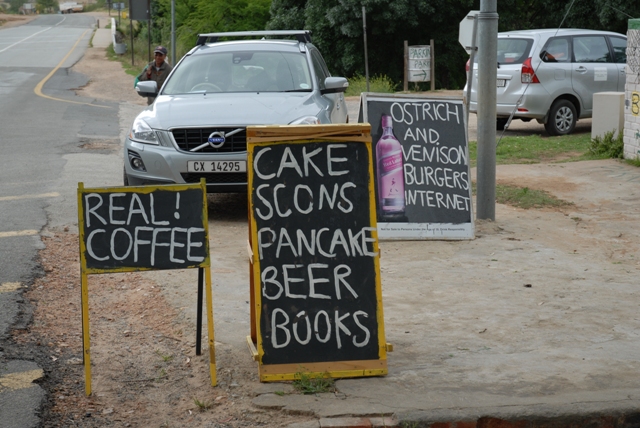 REAL!
COFFEE
CAKE
SCONS
PANCAKE
BEER
BOOKS
OSTRICH
AND
VENISON
BURGERS
INTERNET
CX 14295
VOLVO